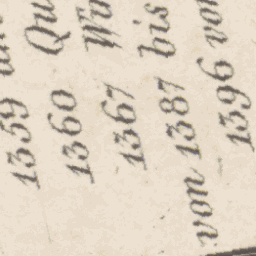 1359
1360 Qu
1367 Wu
von 1387 bis
1396 von